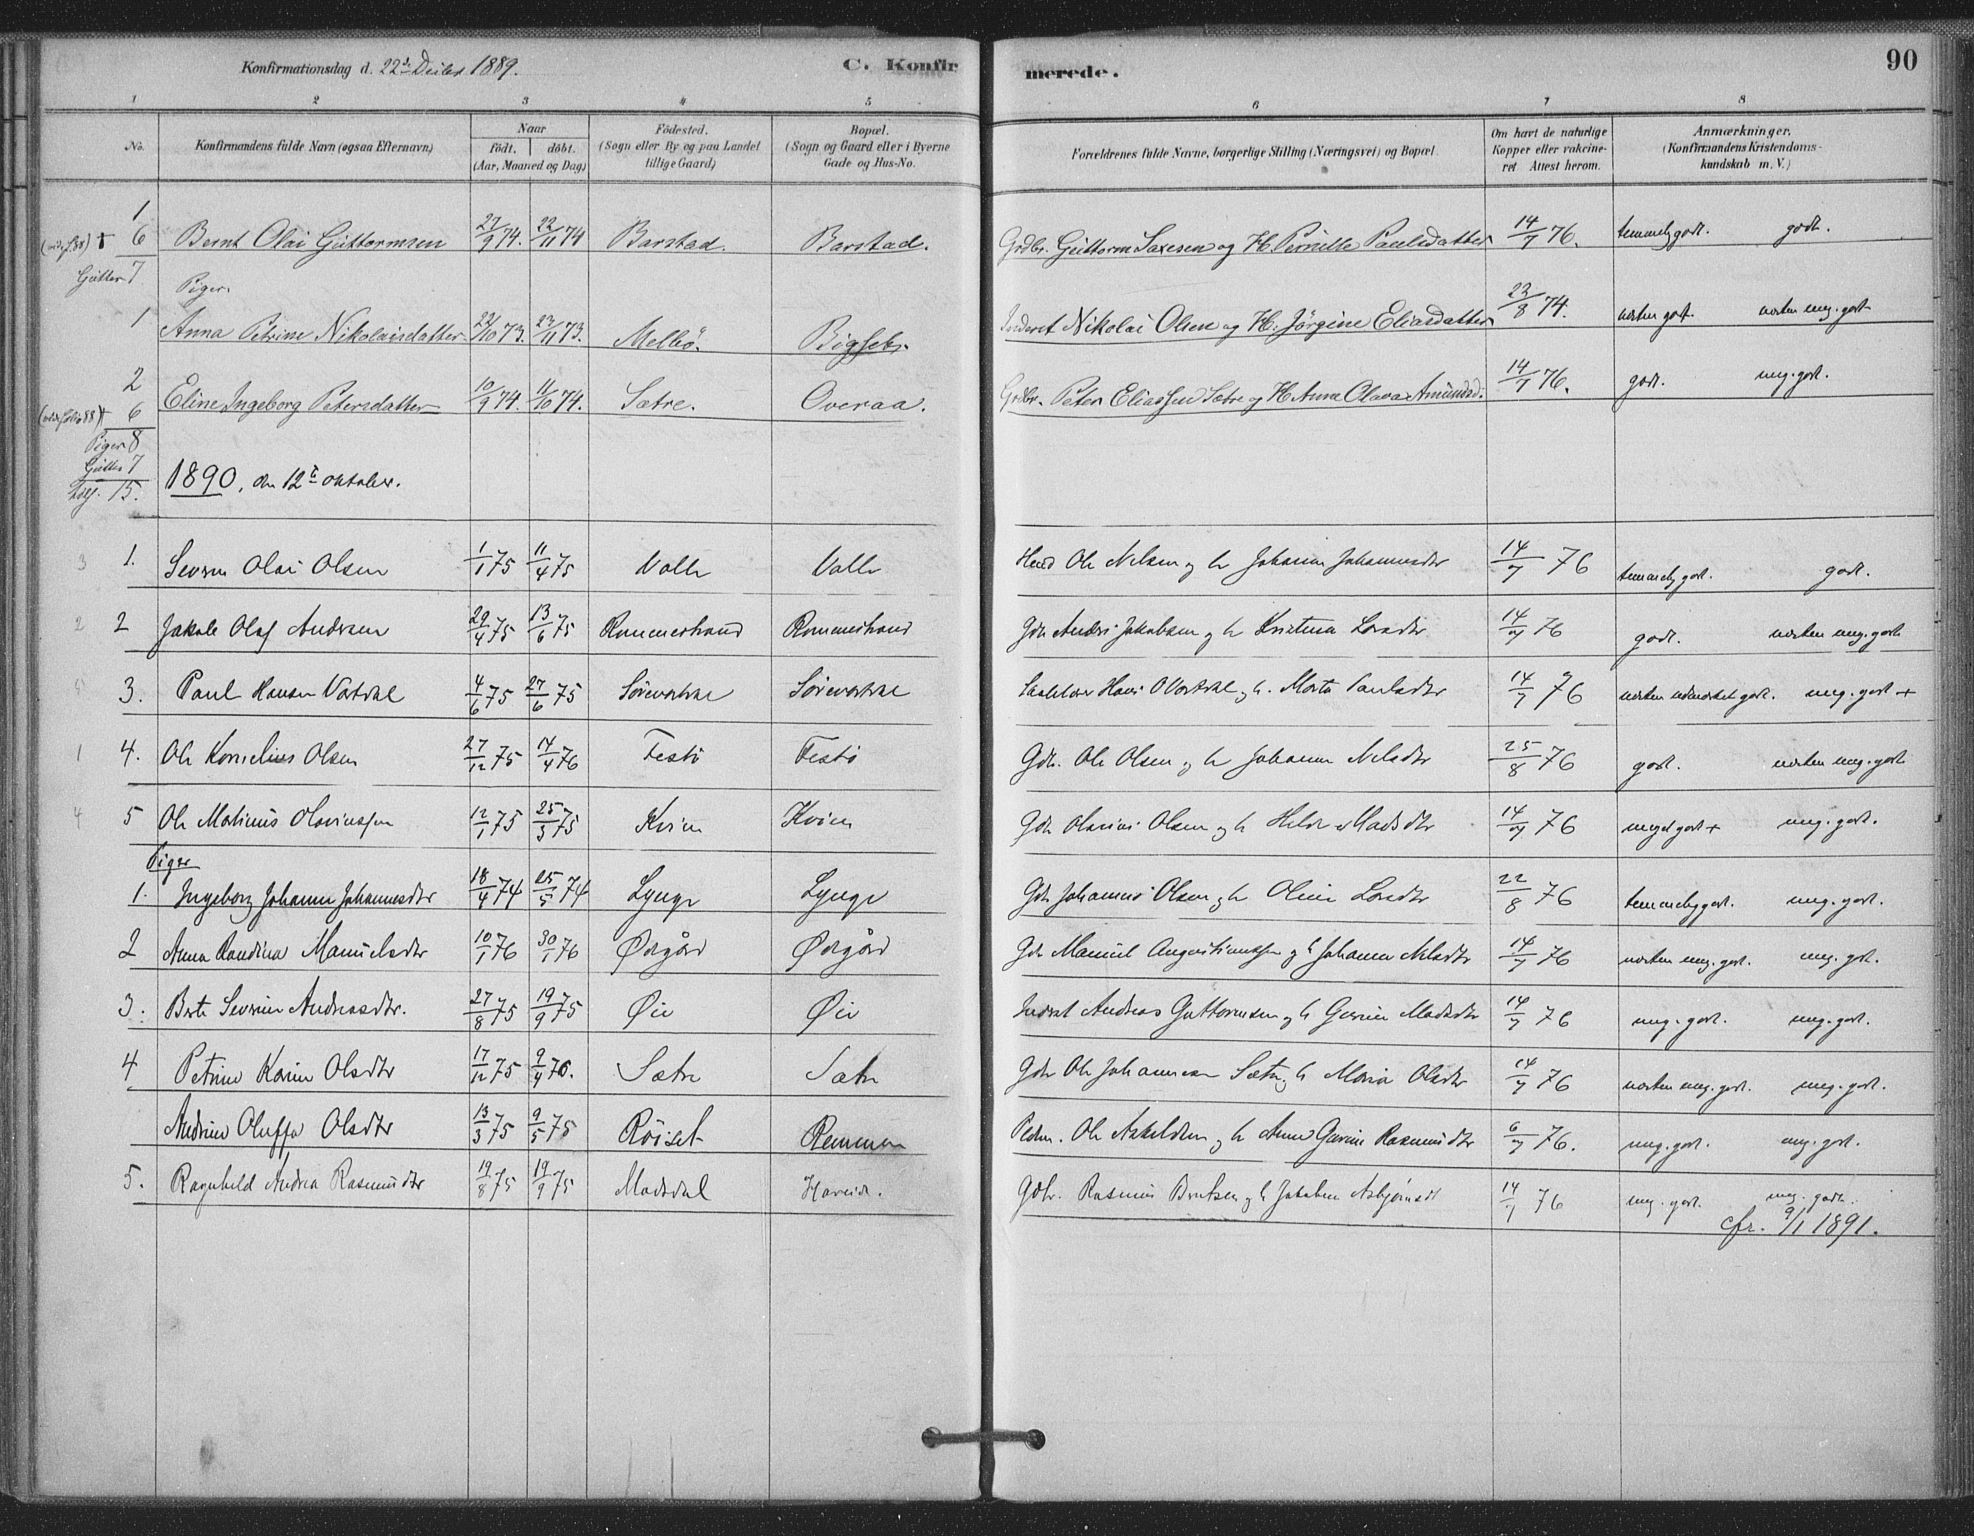 Konfirmationsdag d. 22de Decbr 1889.
C. Konfir merede.
90
1 2 3 4 5 6 7 8
No. Konfirmandens fulde Navn (ogsaa Efternavn) Naar Födt. döbt. (Aar, Maaned og Dag) Födested. (Sogn eller By og paa Landet tillige Gaard) Bopæl. (Sogn og Gaard eller i Byerne Gade og Hus-No. Forældrenes fulde Navne, borgerlige Stilling (Næringsvei) og Bopæl. Om havt de naturlige Kopper eller vakcineret Attest herom. Anmærkninger. (Konfirmandens Kristendomskundskab m. V.)
1 Bernt Olai Guttormsen 27/9 74. 22/11 74 Barstad. Barstad. Grdbr. Guttorm Saxesen og H. Pernille Paulsdatter 14/7 76. temmelig godt. godt.
6
Gutter 7
Piger.
1 Anna Petrine Nikolaisdatter. 22/10 73. 23/11 73. Melbö. Bigset. Inderst Nikolai Olsen og H. Jørgine Eliasdatter 23/8 74. næsten godt. næsten meg. godt
2 Eline Ingeborg Petersdatter 10/9 74. 11/10 74. Sætre. Overaa. Grdbr. Peter Eliassen Sætre og H. Anna Olava Amundsd. 14/7 76. godt. meg. godt.
6
Piger 8
Gutter 7
15.
1890, den 12te oktober.
3 1. Severin Olai Olsen 1/1 75 11/4 75 Valle Valle Ole Nilsen og h Johanne Johannesdtr 14/7 76 temmelig godt. godt.
2 2 Jakob Olaf Andersen 29/4 75 13/6 75 Rommerhand Rommerhand Gdbr Anders Jakobsen og h Kristina Larsdtr 14/7 76 godt. næsten meg. godt
5 3. Paul Hansen Vartdal 4/6 75 27/6 75 Sørevartdal Sørevartdal Hans O Vartdal og h. Marta Paulsdtr 14/7 76 næsten udmærket godt. meg. godt +
1 4. Ole Kornelius Olsen 27/12 75 17/4 76 Festö Festö Gdbr. Ole Olsen og h Johanne Nilsdtr 25/8 76 godt. næsten meg. godt
4 5 Ole Matinus Olavinssen 12/1 75 25/3 75 Kvien Kvien Gdbr Olavius Olsen og h Madsdtr 14/7 76 meget godt + meg. godt.
Piger
1. Ingeborg Johanne Johannesdtr 18/4 74 25/5 74 Lynge Lynge Gdbr Johannes Olsen og h Oline Larsdtr 22/8 76 temmelig godt. meg. godt.
2 Anna Randina Manuelsdtr 10/1 76 30/1 76 Ødegård Ødegård Gdbr Manuel Augustinussen og h Johanne Nilsdtr 14/7 76 næsten meg. godt. meg. godt.
3. Berte Severine Andreasdtr. 27/8 75 19/9 75 Øie Øie Inderst Andreas Guttormsen og h Gurine Madsdtr 14/7 76 meg. godt. meg. godt.
4 Petrine Karine Olsdtr 17/12 75 9/4 76. Sætre Sætre Gdbr Ole Johannesen Sætre og h Maria Olsdtr 14/7 76 næsten meg. godt. meg. godt.
Andrine Oluffa Olsdtr 13/3 75 9/5 75 Röiset Remmen Ole Askildsen og h Anne Gurine Rasmusdtr 6/7 76. meg. godt. meg. godt.
5. Ragnhild Andrea Rasmusdtr 19/8 75 19/9 75 Madsdal Hareide. Gdbr. Rasmus Berntsen og h Jakobine Asbjørnsdt 14/7 76 meg. godt. meg. godt.
cfr. 9/1 1891.